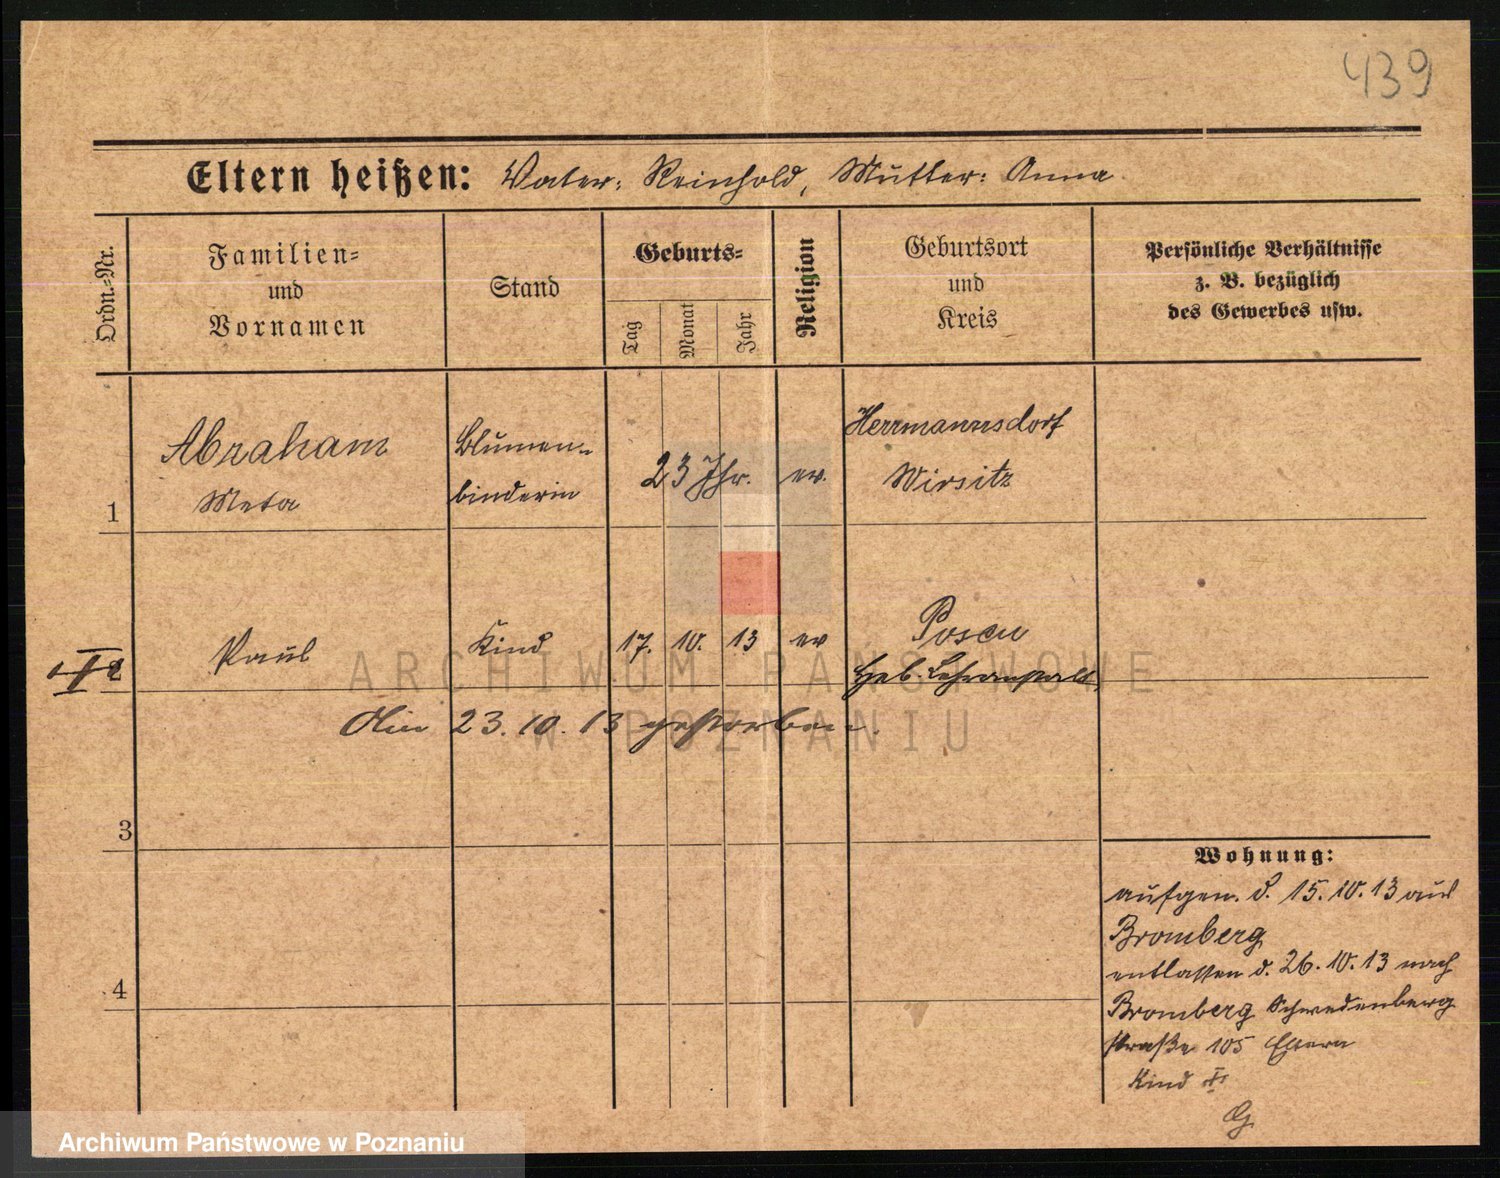 439
Eltern heißen: Vater: Reinhold, Mutter: Anna
Ordn.-Nr.
Familien-
und
Vornamen
Stand
Geburts-
Tag
Monat
Jahr
Religion
Geburtsort
und
Kreis
Persönliche Verhältnisse
z. B. bezüglich
des Gewerbes usw.
1
Abraham
Meta
Blumen-
binderin
23 Jhr.
ev.
Herrmannsdorf
Wirsitz
2
Paul
Kind
17. 10. 13
ev
Posen
Heb. Lehranstalt.
Am 23. 10. 13 gestorben.
3
4
Wohnung:
aufgen. d. 15. 10. 13 aus
Bromberg
entlassen d. 26. 10. 13 nach
Bromberg Schwedenberg
straße 105 Eltern
Kind †
ARCHIWUM PAŃSTWOWE
W POZNANIU
Archiwum Państwowe w Poznaniu